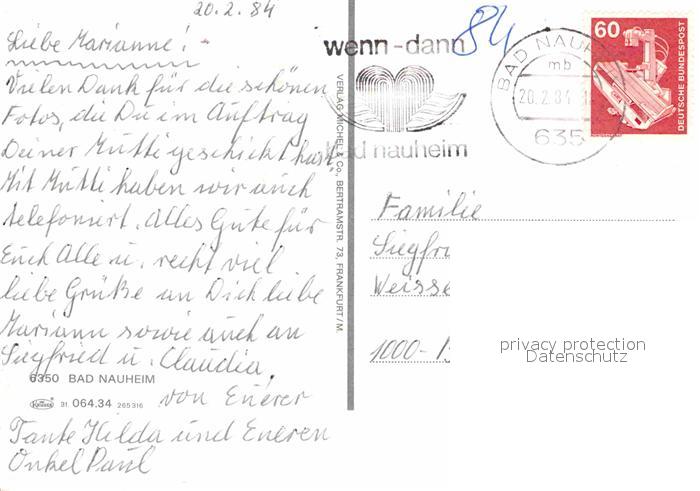 20.2.84
Liebe Marianne! -
Vielen Dank für die schönen
Fotos, die Du im Auftrag
Deiner Mutti geschickt hast.
Mit Mutti haben wir auch
telefoniert. Alles Gute für
Euch Alle u. recht viel
liebe Grüße an Dich liebe
Mariann sowie auch an
Siegfried u. Claudia,
von Euerer
Tante Hilda und Eueren
Onkel Paul
6350 BAD NAUHEIM
Krüger 91 064.34 265316
VERLAG MICHEL & Co., BERTRAMSTR. 73, FRANKFURT/M.
wenn-dann
bad nauheim
84
BAD NAUH
mb
20.2.84
635
60
DEUTSCHE BUNDESPOST
Familie
Siegfri
Weisse
1000-
privacy protection
Datenschutz